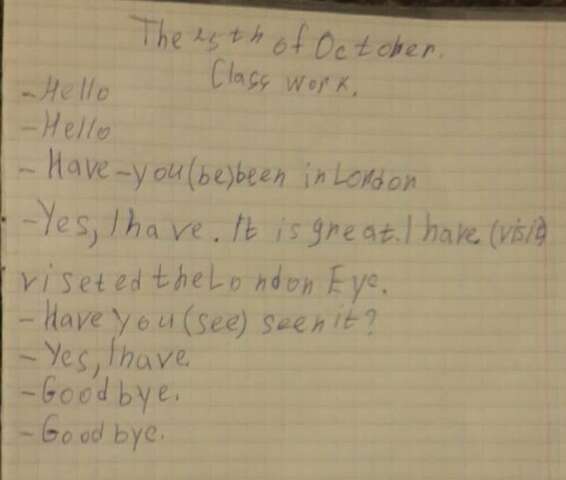 The 25th of October.
Class work.
- Hello
- Hello
- Have-you(be)been in London
- Yes, I have. It is great. I have (visit)
viseted the London Eye.
- Have you (see) seen it?
- Yes, I have
- Good bye.
- Good bye.